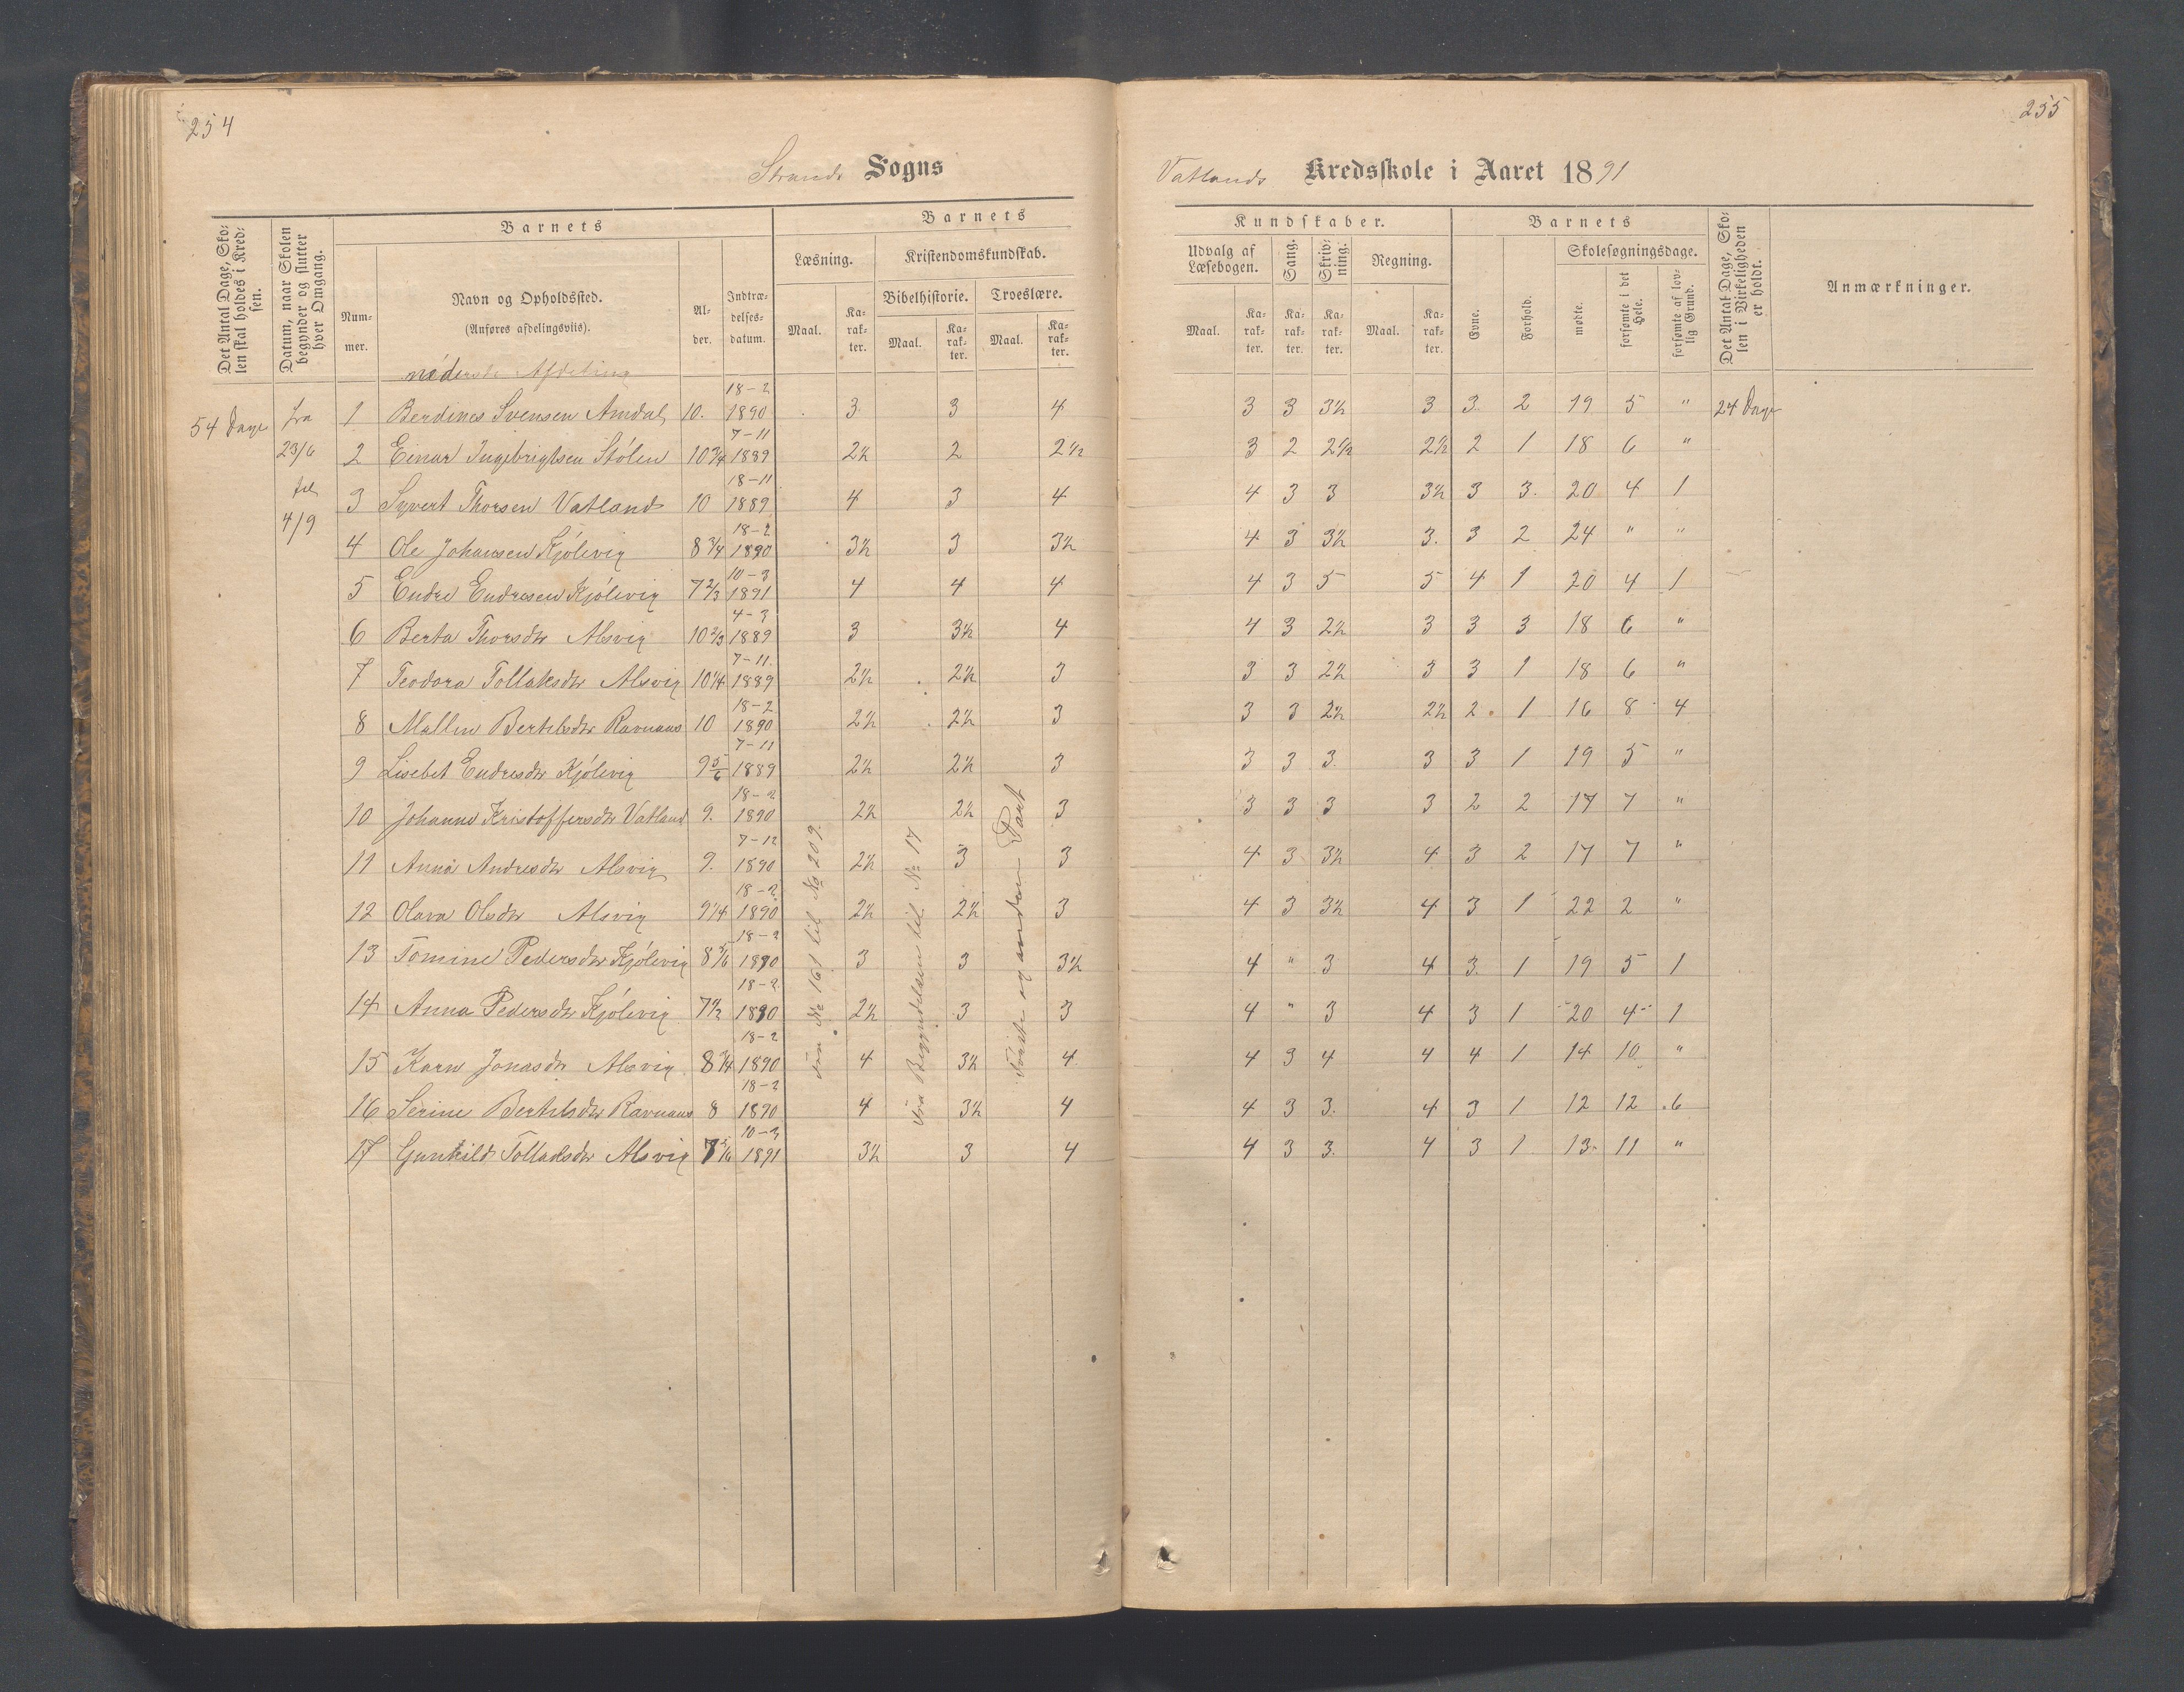 254
255
Strands Sogns
Vatlands Kredsskole i Aaret 1891
Det Antal Dage, Skolen skal holdes i Kredsen.
Datum, naar Skolen begynder og slutter hver Omgang.
Barnets
Nummer.
Navn og Opholdssted.
(Anføres afdelingsviis).
Alder.
Indtrædelsesdatum.
Barnets
Læsning.
Kristendomskundskab.
Bibelhistorie. Troeslære.
Maal. Karakter. Maal. Karakter. Maal. Karakter.
Kundskaber.
Udvalg af Læsebogen. Sang. Skrivning. Regning.
Maal. Karakter. Karakter. Karakter. Maal. Karakter.
Barnets
Evne. Forhold.
Skolesøgningsdage.
mødte. forsømte i det Hele. forsømte af lovlig Grund.
Det Antal Dage, Skolen i Virkeligheden er holdt.
Anmærkninger.
nederste Afdeling
54 Dage fra 23/6 til 4/9
1 Berdines Svensen Amdal 10. 18-2 1890 3 3 4 3 3 3½ 3 3 2 19 5 " 24 Dage
2 Einar Ingebrigtsen Stölen 10¾ 7-11 1889 2½ 2 2½ 3 2 2½ 2½ 2 1 18 6 "
3 Syvert Thorsen Vatland 10 18-11 1889 4 3 4 4 3 3 3½ 3 3 20 4 1
4 Ole Johansen Kjölevig 8¾ 18-2 1890 3½ 3 3½ 4 3 3½ 3 3 2 24 " "
5 Endre Endresen Kjölevig 7⅔ 10-3 1891 4 4 4 4 3 5 5 4 1 20 4 1
6 Berta Thorsdtr Alsvig 10⅔ 4-3 1889 3 3½ 4 4 3 2½ 3 3 3 18 6 "
7 Teodora Tollaksdtr Alsvig 10¼ 7-11 1889 2½ 2½ 3 3 3 2½ 3 3 1 18 6 "
8 Mallin Bertelsdtr Ravnaas 10 18-2 1890 2½ 2½ 3 3 3 2½ 2½ 2 1 16 8 4
9 Lisebet Endresdtr Kjölevig 9⅚ 7-11 1889 2½ 2½ 3 3 3 3 3 3 1 19 5 "
10 Johanne Kristoffersdtr Vatland 9. 18-2 1890 2½ 2½ 3 3 3 3 3 2 2 17 7 "
11 Anna Andresdtr Alsvig 9. 7-12 1890 2½ 3 3 4 3 3½ 4 3 2 17 7 "
12 Olava Olsdtr Alsvig 9¼ 18-2 1890 2½ 2½ 3 4 3 3½ 4 3 1 22 2 "
13 Tomine Pedersdtr Kjölevig 8⅚ 18-2 1890 3 3 3½ 4 " 3 4 3 1 19 5 1
14 Anna Pedersdtr Kjölevig 7½ 18-2 1890 2½ 3 3 4 " 3 4 3 1 20 4 1
15 Karn Jonasdtr Alsvig 8¾ 18-2 1890 4 3½ 4 4 3 4 4 4 1 14 10 "
16 Serine Bertelsdtr Ravnaas 8 18-2 1890 4 3½ 4 4 3 3. 4 3 1 12 12 6
17 Gunhild Tollaksdtr Alsvig 7⅚ 10-3 1891 3½ 3 4 4 3 3. 4 3 1 13 11 "
fra № 161 til № 209.
fra Begyndelsen til № 17
Förste og anden Part